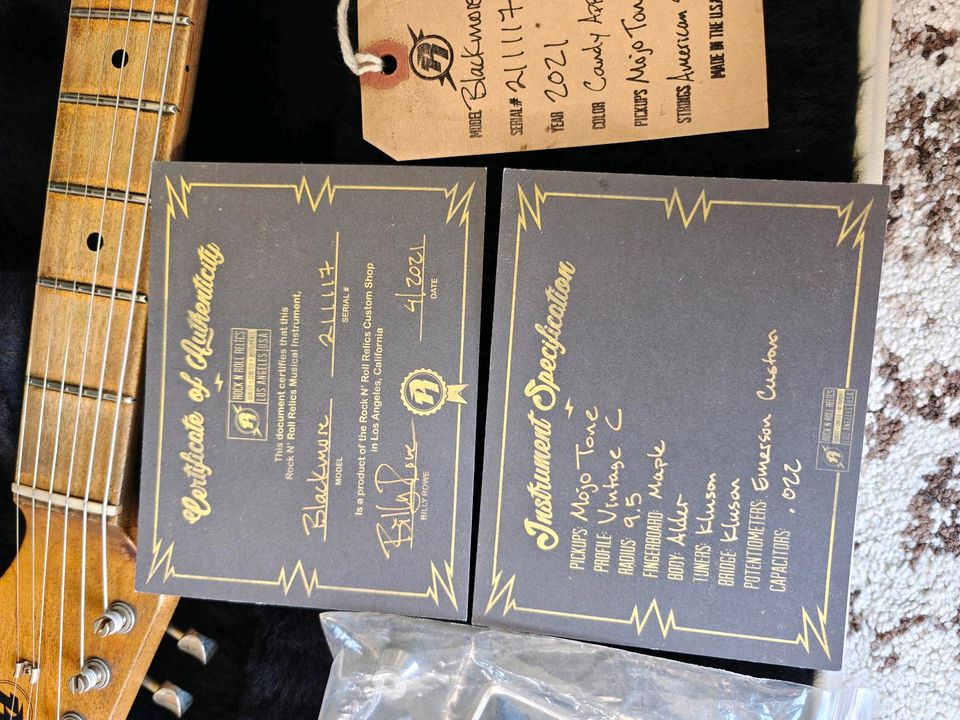 MODEL Blackmore
SERIAL# 211117
YEAR 2021
COLOR Candy
PICKUPS Mojo Ton
STRINGS American
MADE IN THE USA
Certificate of Authenticity
ROCK N ROLL RELICS
LOS ANGELES USA
This document certifies that this
Rock N' Roll Relics Musical Instrument,
Blackmore 211117
MODEL SERIAL#
Is a product of the Rock N' Roll Relics Custom Shop
in Los Angeles, California
Billy Rowe 4/2021
BILLY ROWE DATE
Instrument Specification
PICKUPS: Mojo Tone
PROFILE: Vintage C
RADIUS: 9.5
FINGERBOARD: Maple
BODY: Alder
TUNERS: Kluson
BRIDGE: Kluson
POTENTIOMETERS: Emerson Custom
CAPACITORS: .022
ROCK N ROLL RELICS
LOS ANGELES USA